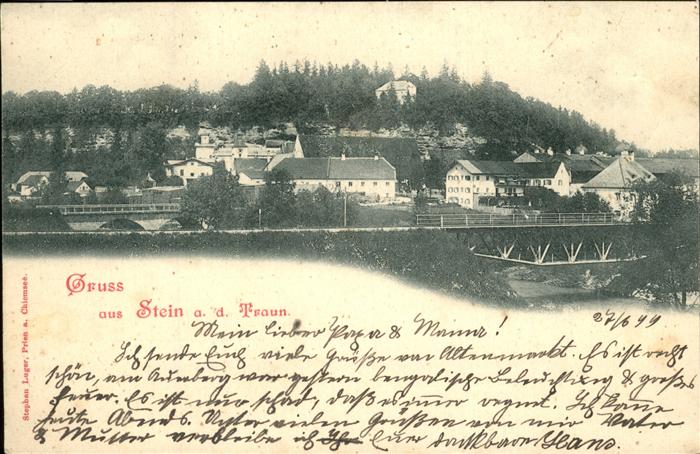 Gruss
aus Stein a. d. Traun.
Stephan Luger, Prien a. Chiemsee.
27/6 99
Mein lieber Papa & Mama!
Ich sende Euch viele Grüße von Altenmarkt. Es ist recht
schön, am Aumberg war gestern bengalische Beleuchtung & großes
Feuer. Es ist nur schad, daß es immer regnet. Ich komme
heute Abends. Unter vielen Grüßen von mir Vater
& Mutter verbleibe ich Ihr Euer dankbarer Hans.